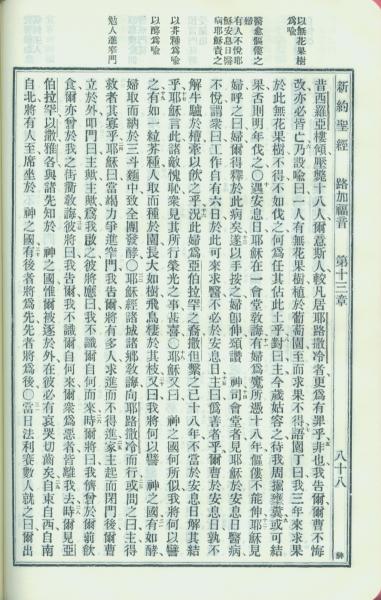 新約聖經 路加福音 第十三章 八十八 神
以無花果樹為喻
醫愈傴僂之婦
有人不悅耶穌安息日醫病耶穌責之
以芥種為喻
以酵為喻
勉人進窄門
昔西羅亞樓傾壓斃十八人爾意斯人較凡居耶路撒冷者更為有罪乎非也我告爾爾曹不悔
改亦必皆亡乃設喻曰一人有無花果樹植於葡萄園至而求果不得語園丁曰我三年來求果
於此無花果樹不得不如伐之何為任其佔此土乎對曰主今歲姑容之待我掘壅糞或可結
果否則明年伐之〇遇安息日耶穌在一會堂敎誨有婦為魔所憑十八年傴僂不能伸耶穌見
婦呼之曰婦爾得釋於此病矣遂以手按之婦卽伸頌讚 神司會堂者見耶穌於安息日醫病
不悅謂衆曰工作自有六日於此可來求醫不必於安息日主曰偽善者乎爾曹於安息日孰不
解牛驢於槽牽以飲之乎況此婦為亞伯拉罕之裔撒但繫之已十八年不當於安息日解其結
乎耶穌言此諸敵愧恥衆見其所行榮光之事甚喜〇耶穌又曰 神之國何所似我將何以譬
之有如一粒芥種人取而種於園長大如樹飛鳥棲於其枝又曰我將何以譬 神之國有如酵
婦取而納於三斗麵中致全團發酵〇耶穌經諸城諸鄉敎誨向耶路撒冷而行或問之曰主得
救者其寡乎耶穌曰當竭力爭進窄門我告爾將有多人求進而不得進家主起而閉門後爾曹
立於外叩門曰主歟主歟為我啟之彼將應曰我不識爾自何而來時爾將曰我儕曾於爾前飲
食爾亦曾於我之街衢敎誨彼將曰我告爾我不識爾自何來爾衆為惡者皆離我去時爾見亞
伯拉罕以撒雅各與諸先知於 神之國惟爾被逐於外在彼必有哀哭切齒矣自東自西自南
自北將有人至席坐於 神之國有後者將為先先者將為後〇當日法利賽數人就之曰爾出